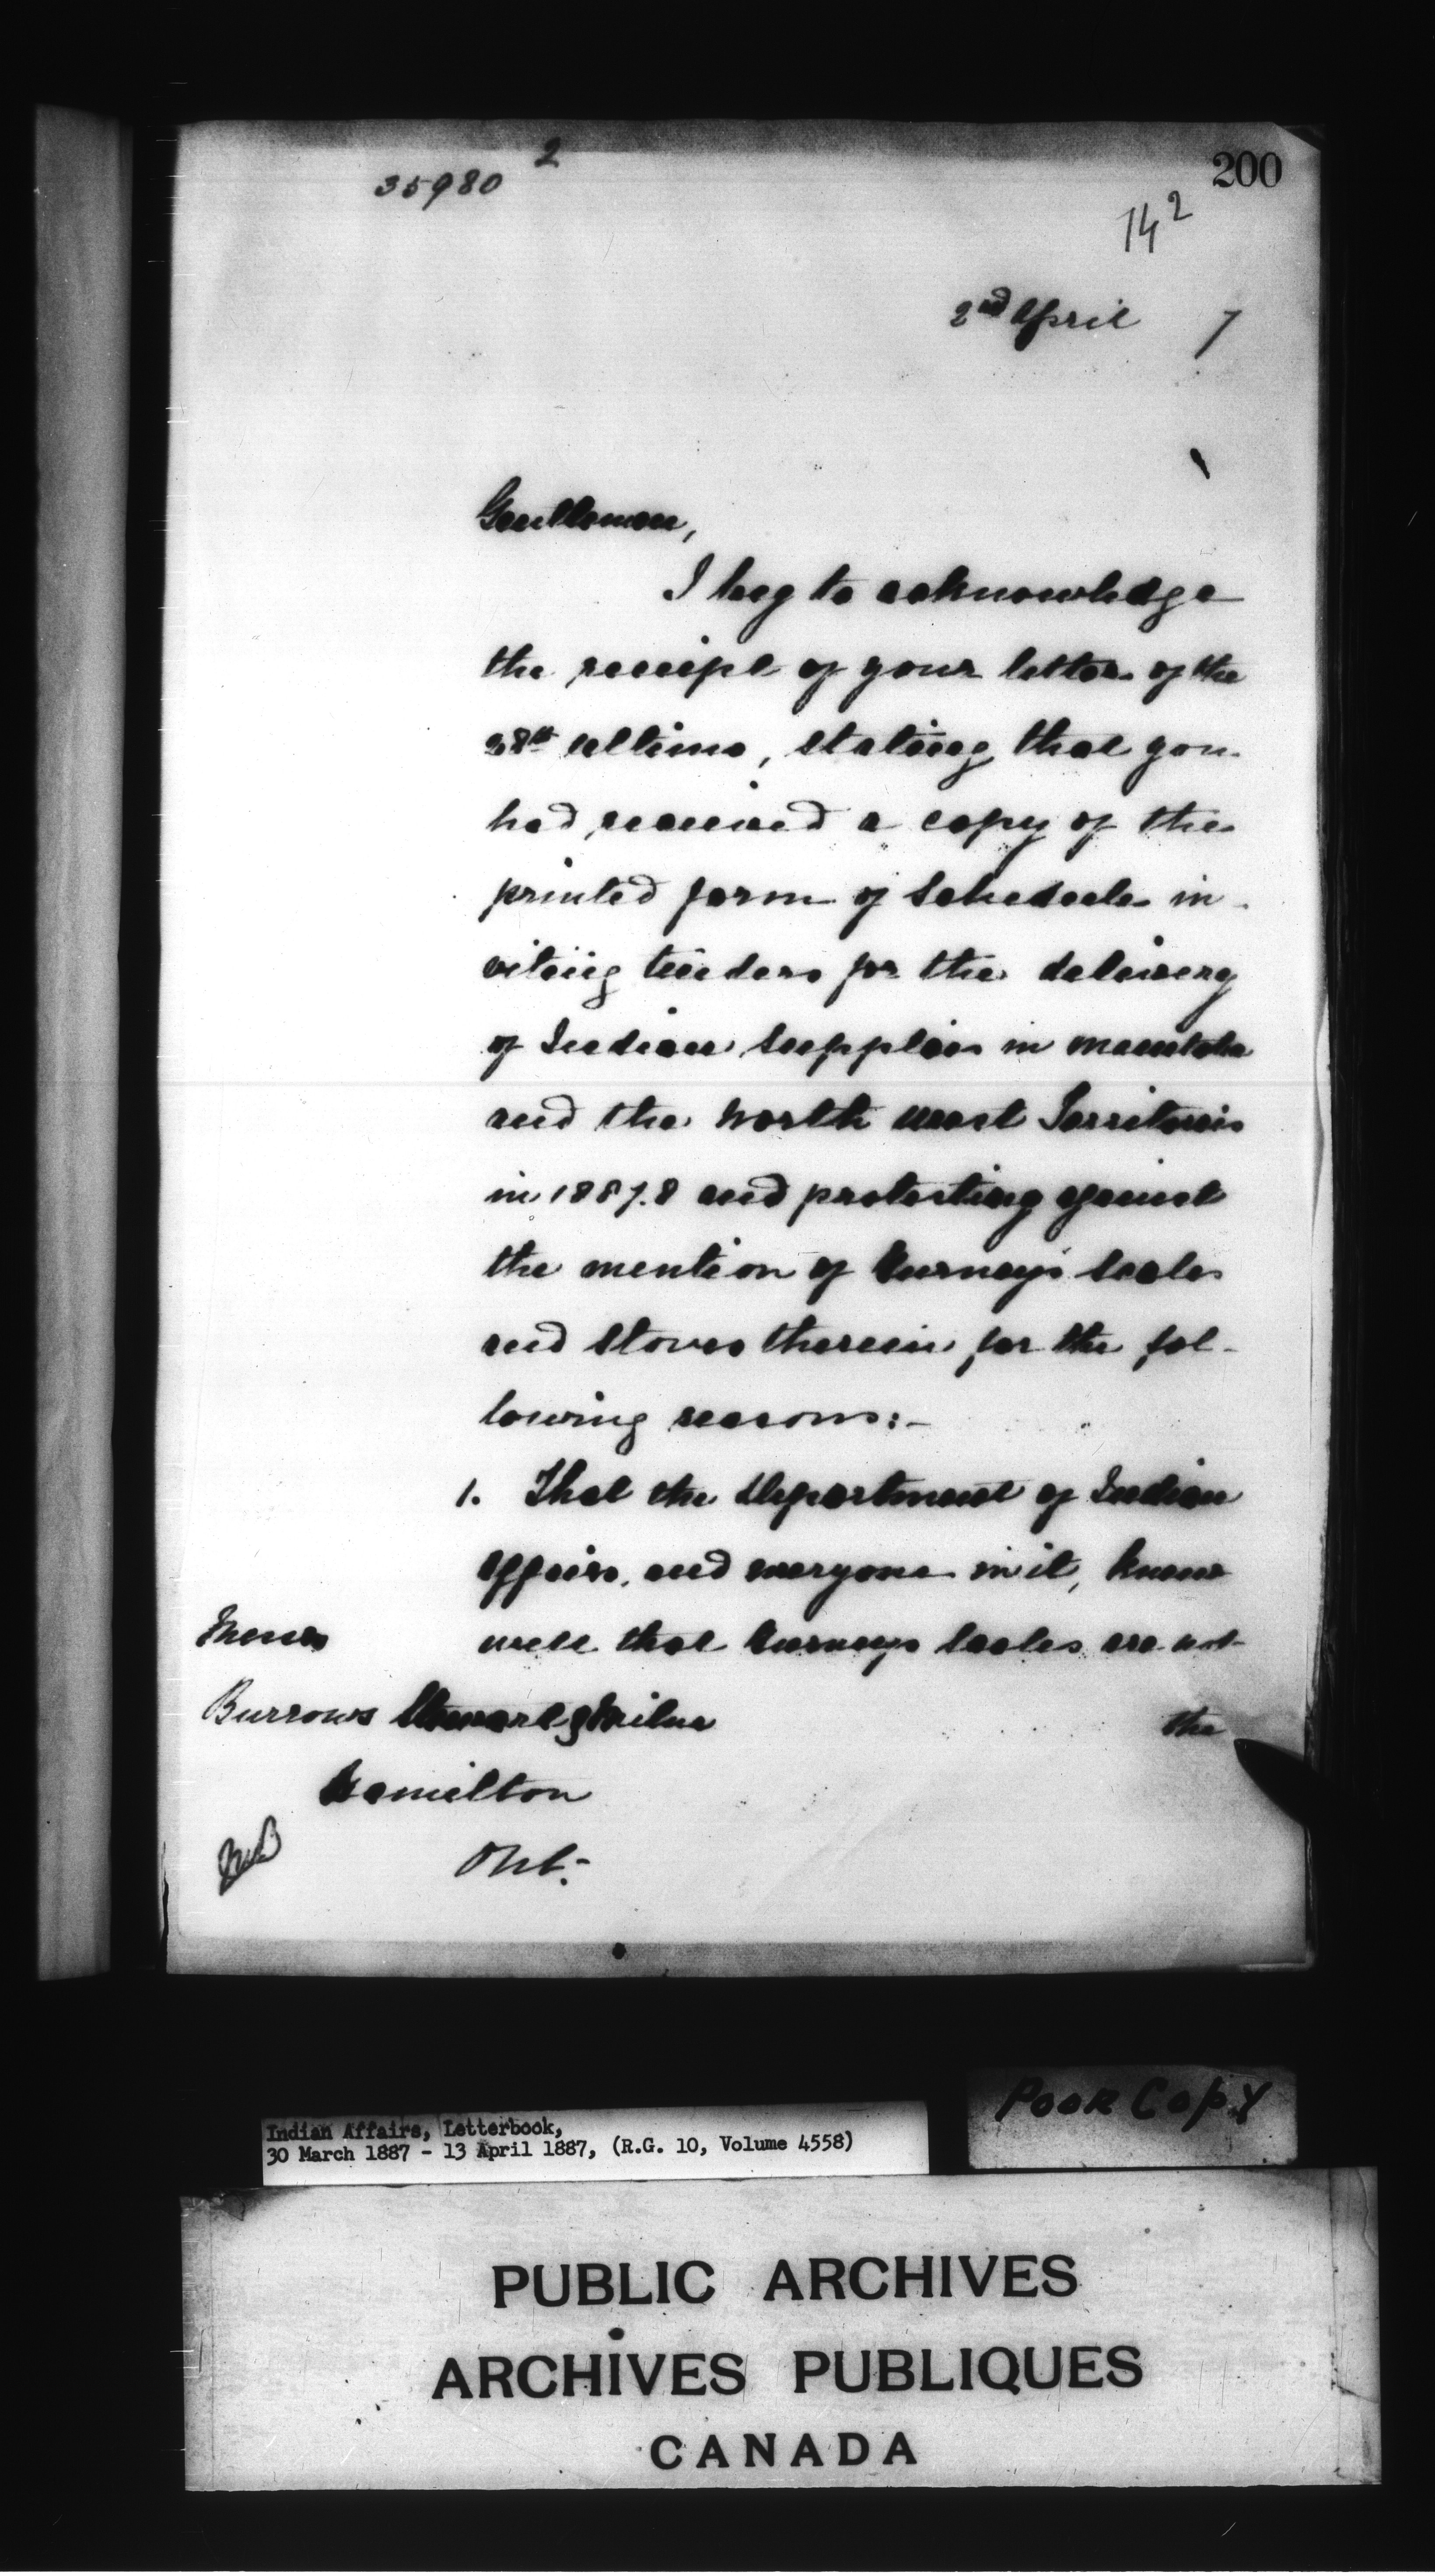 35980 2
200
14 2
2nd April 7
Gentlemen,
I beg to acknowledge
the receipt of your letter of the
28th ultimo, stating that you
had received a copy of the
printed form of Schedule in-
viting tenders for the delivery
of Indian Supplies in Manitoba
and the North West Territories
in 1887.8 and protesting against
the mention of Gurney's scales
and stoves therein for the fol-
lowing reasons:-
1. That the Department of Indian
Affairs, and everyone in it, knows
well that Gurneys scales are not
the
Messrs
Burrows Stewart & Milne
Hamilton
Ont.-
Poor Copy
Indian Affairs, Letterbook,
30 March 1887 - 13 April 1887, (R.G. 10, Volume 4558)
PUBLIC ARCHIVES
ARCHIVES PUBLIQUES
CANADA